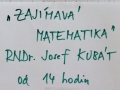 „ZAJÍMAVÁ
MATEMATIKA"
RNDr. Josef KUBÁT
od 14 hodin